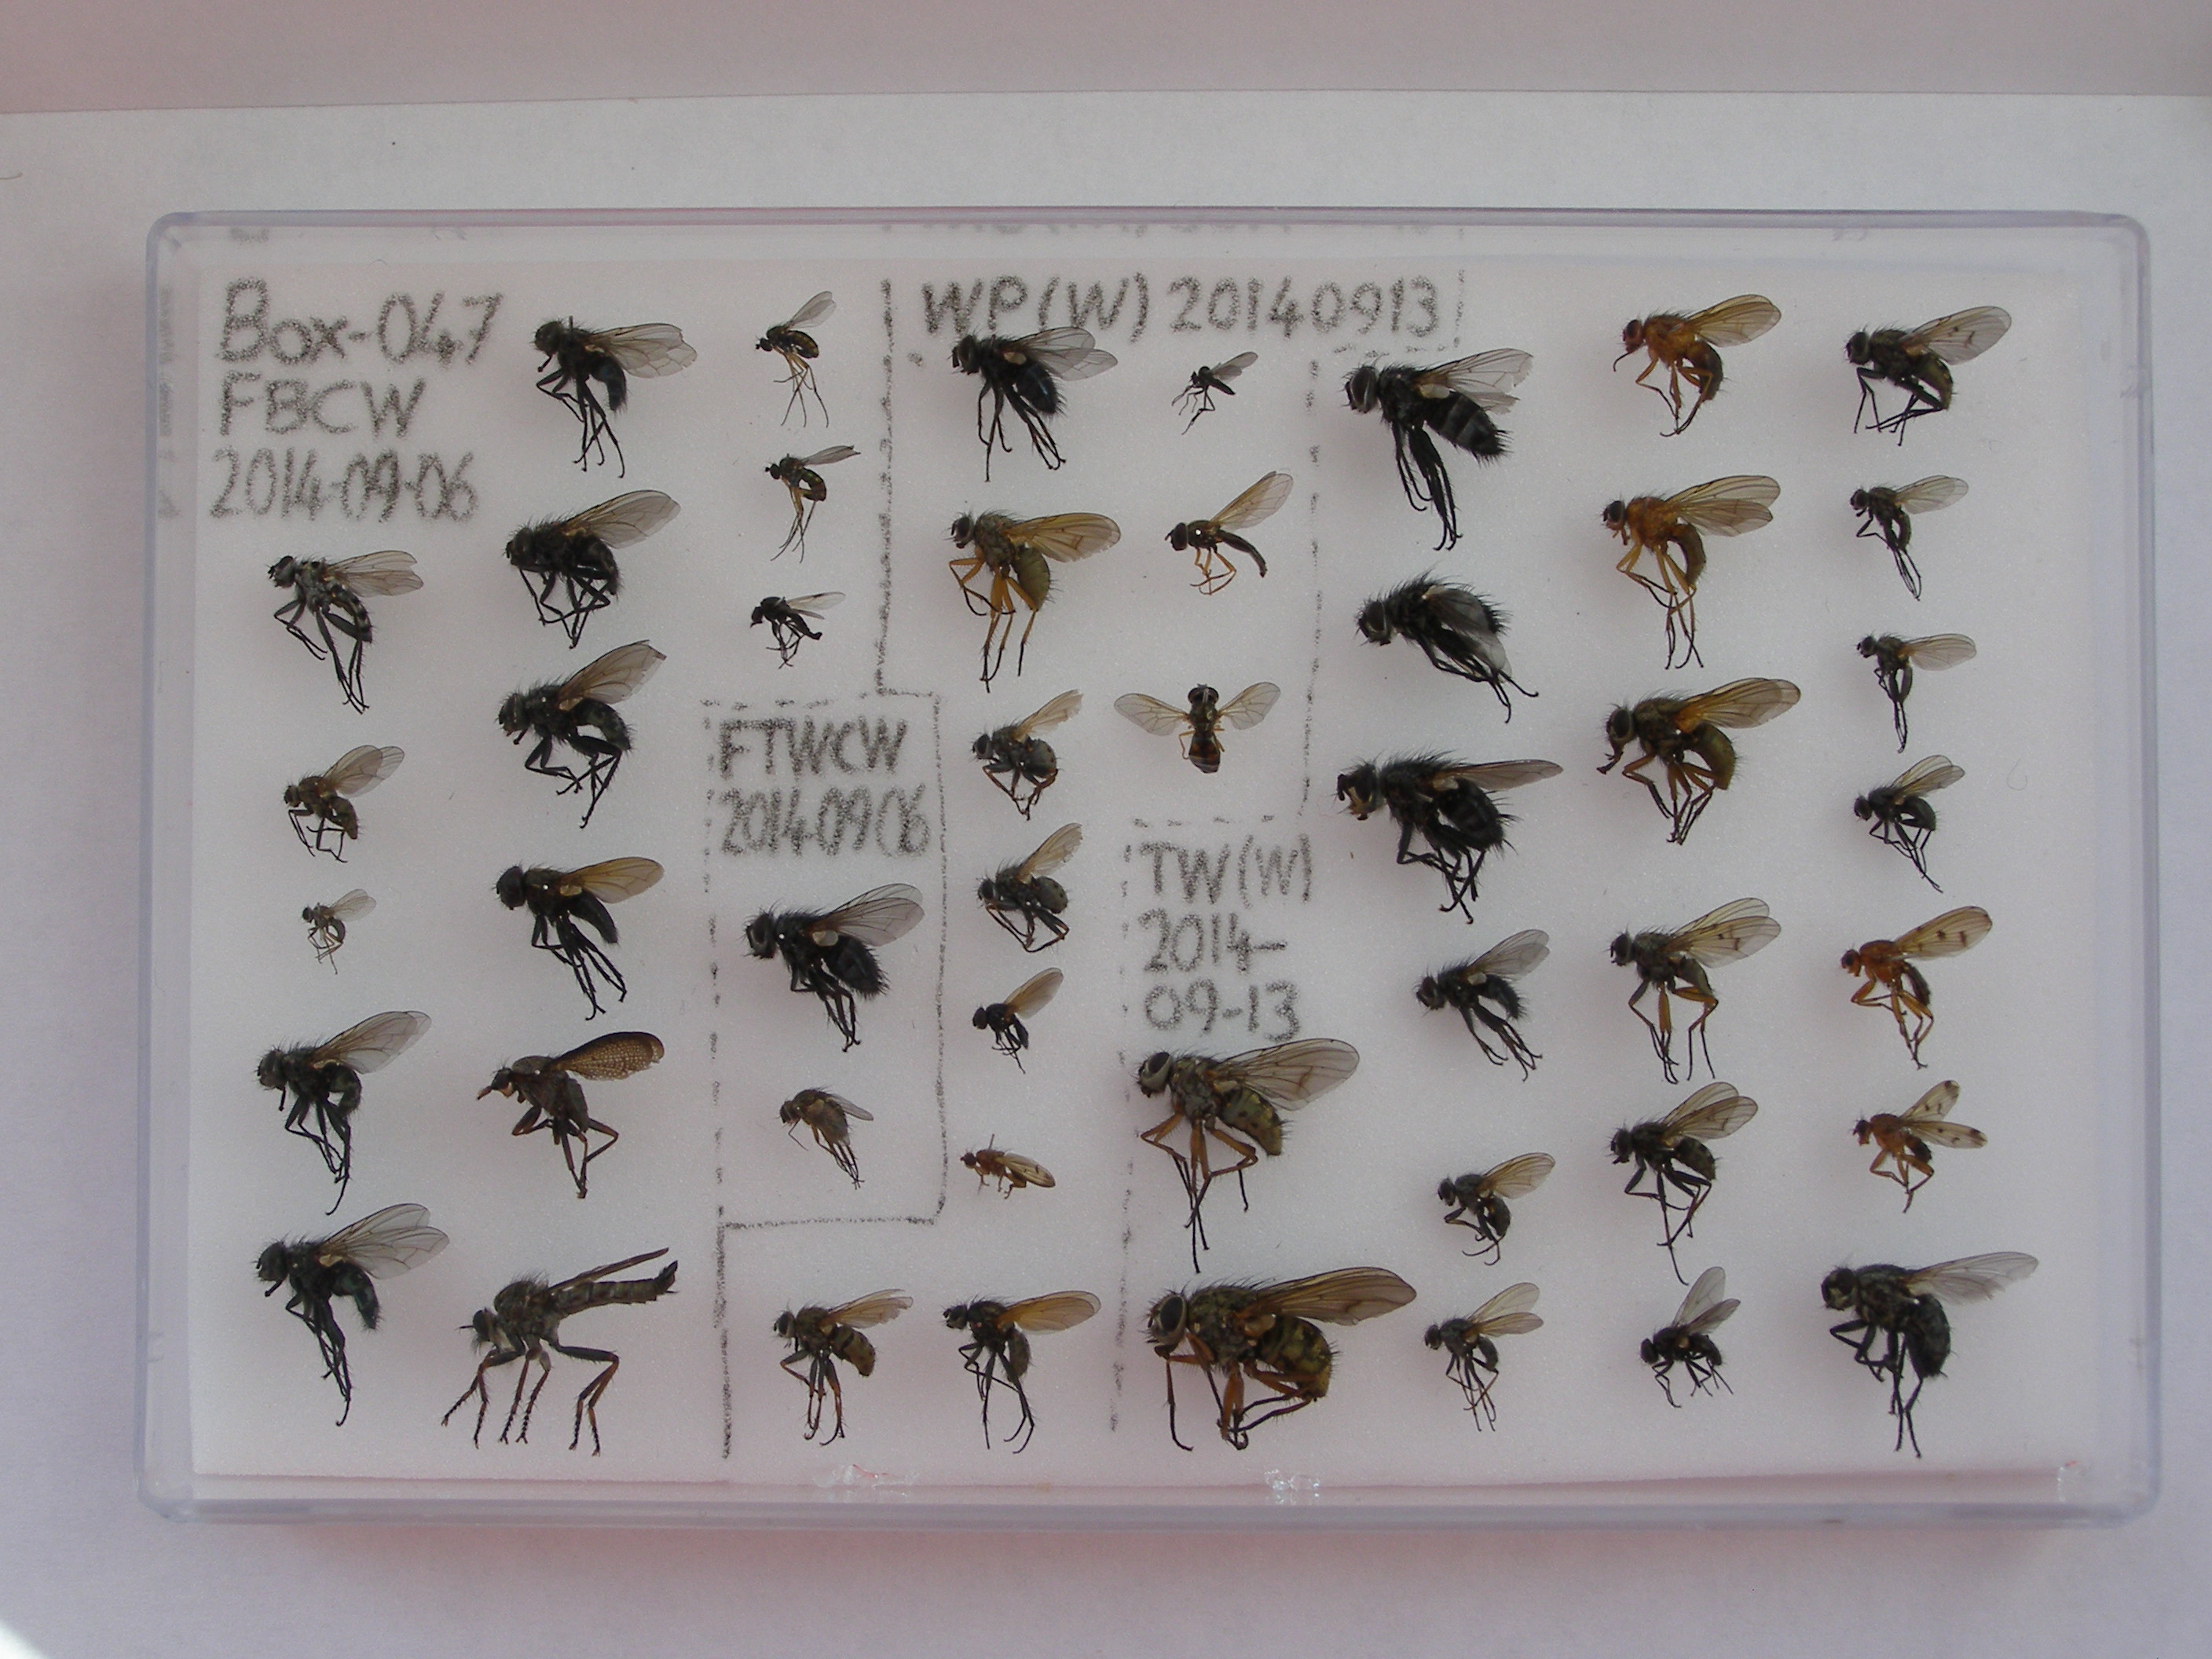 Box-047
FBCW
2014-09-06
WP(W) 20140913
FTWCW
20140906
TW(W)
2014-
09-13